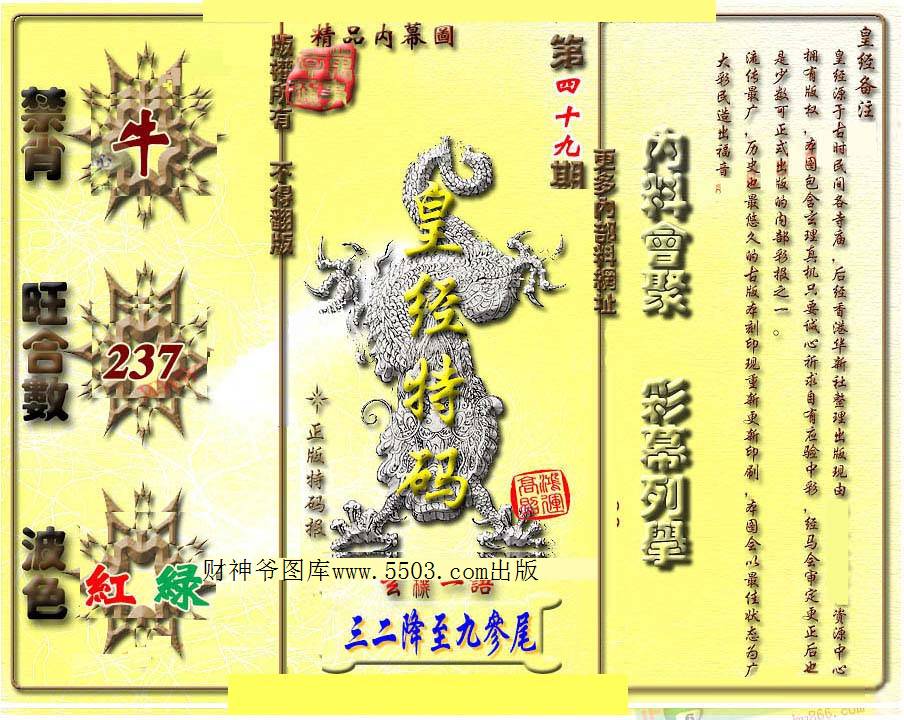 精品内幕圖
版權所有 不得翻版
禁肖
牛
旺合數
237
波色
紅 綠
第四十九期
更多内部料網址
皇经特码
正版特码报
鴻運高照
财神爷图库www.5503.com出版
玄機一語
三二降至九參尾
内料會聚
彩幕列舉
皇经备注
皇经源于古时民间各寺庙,后经香港华新社整理出版现由 资源中心
拥有版权,本图包含玄理真机只要诚心祈求自有应验中彩,经马会审定更正后也
是少数可正式出版的内部彩报之一。
流传最广,历史也最悠久的古版本刻印现重新更新印刷,本图会以最佳状态为广
大彩民造出福音